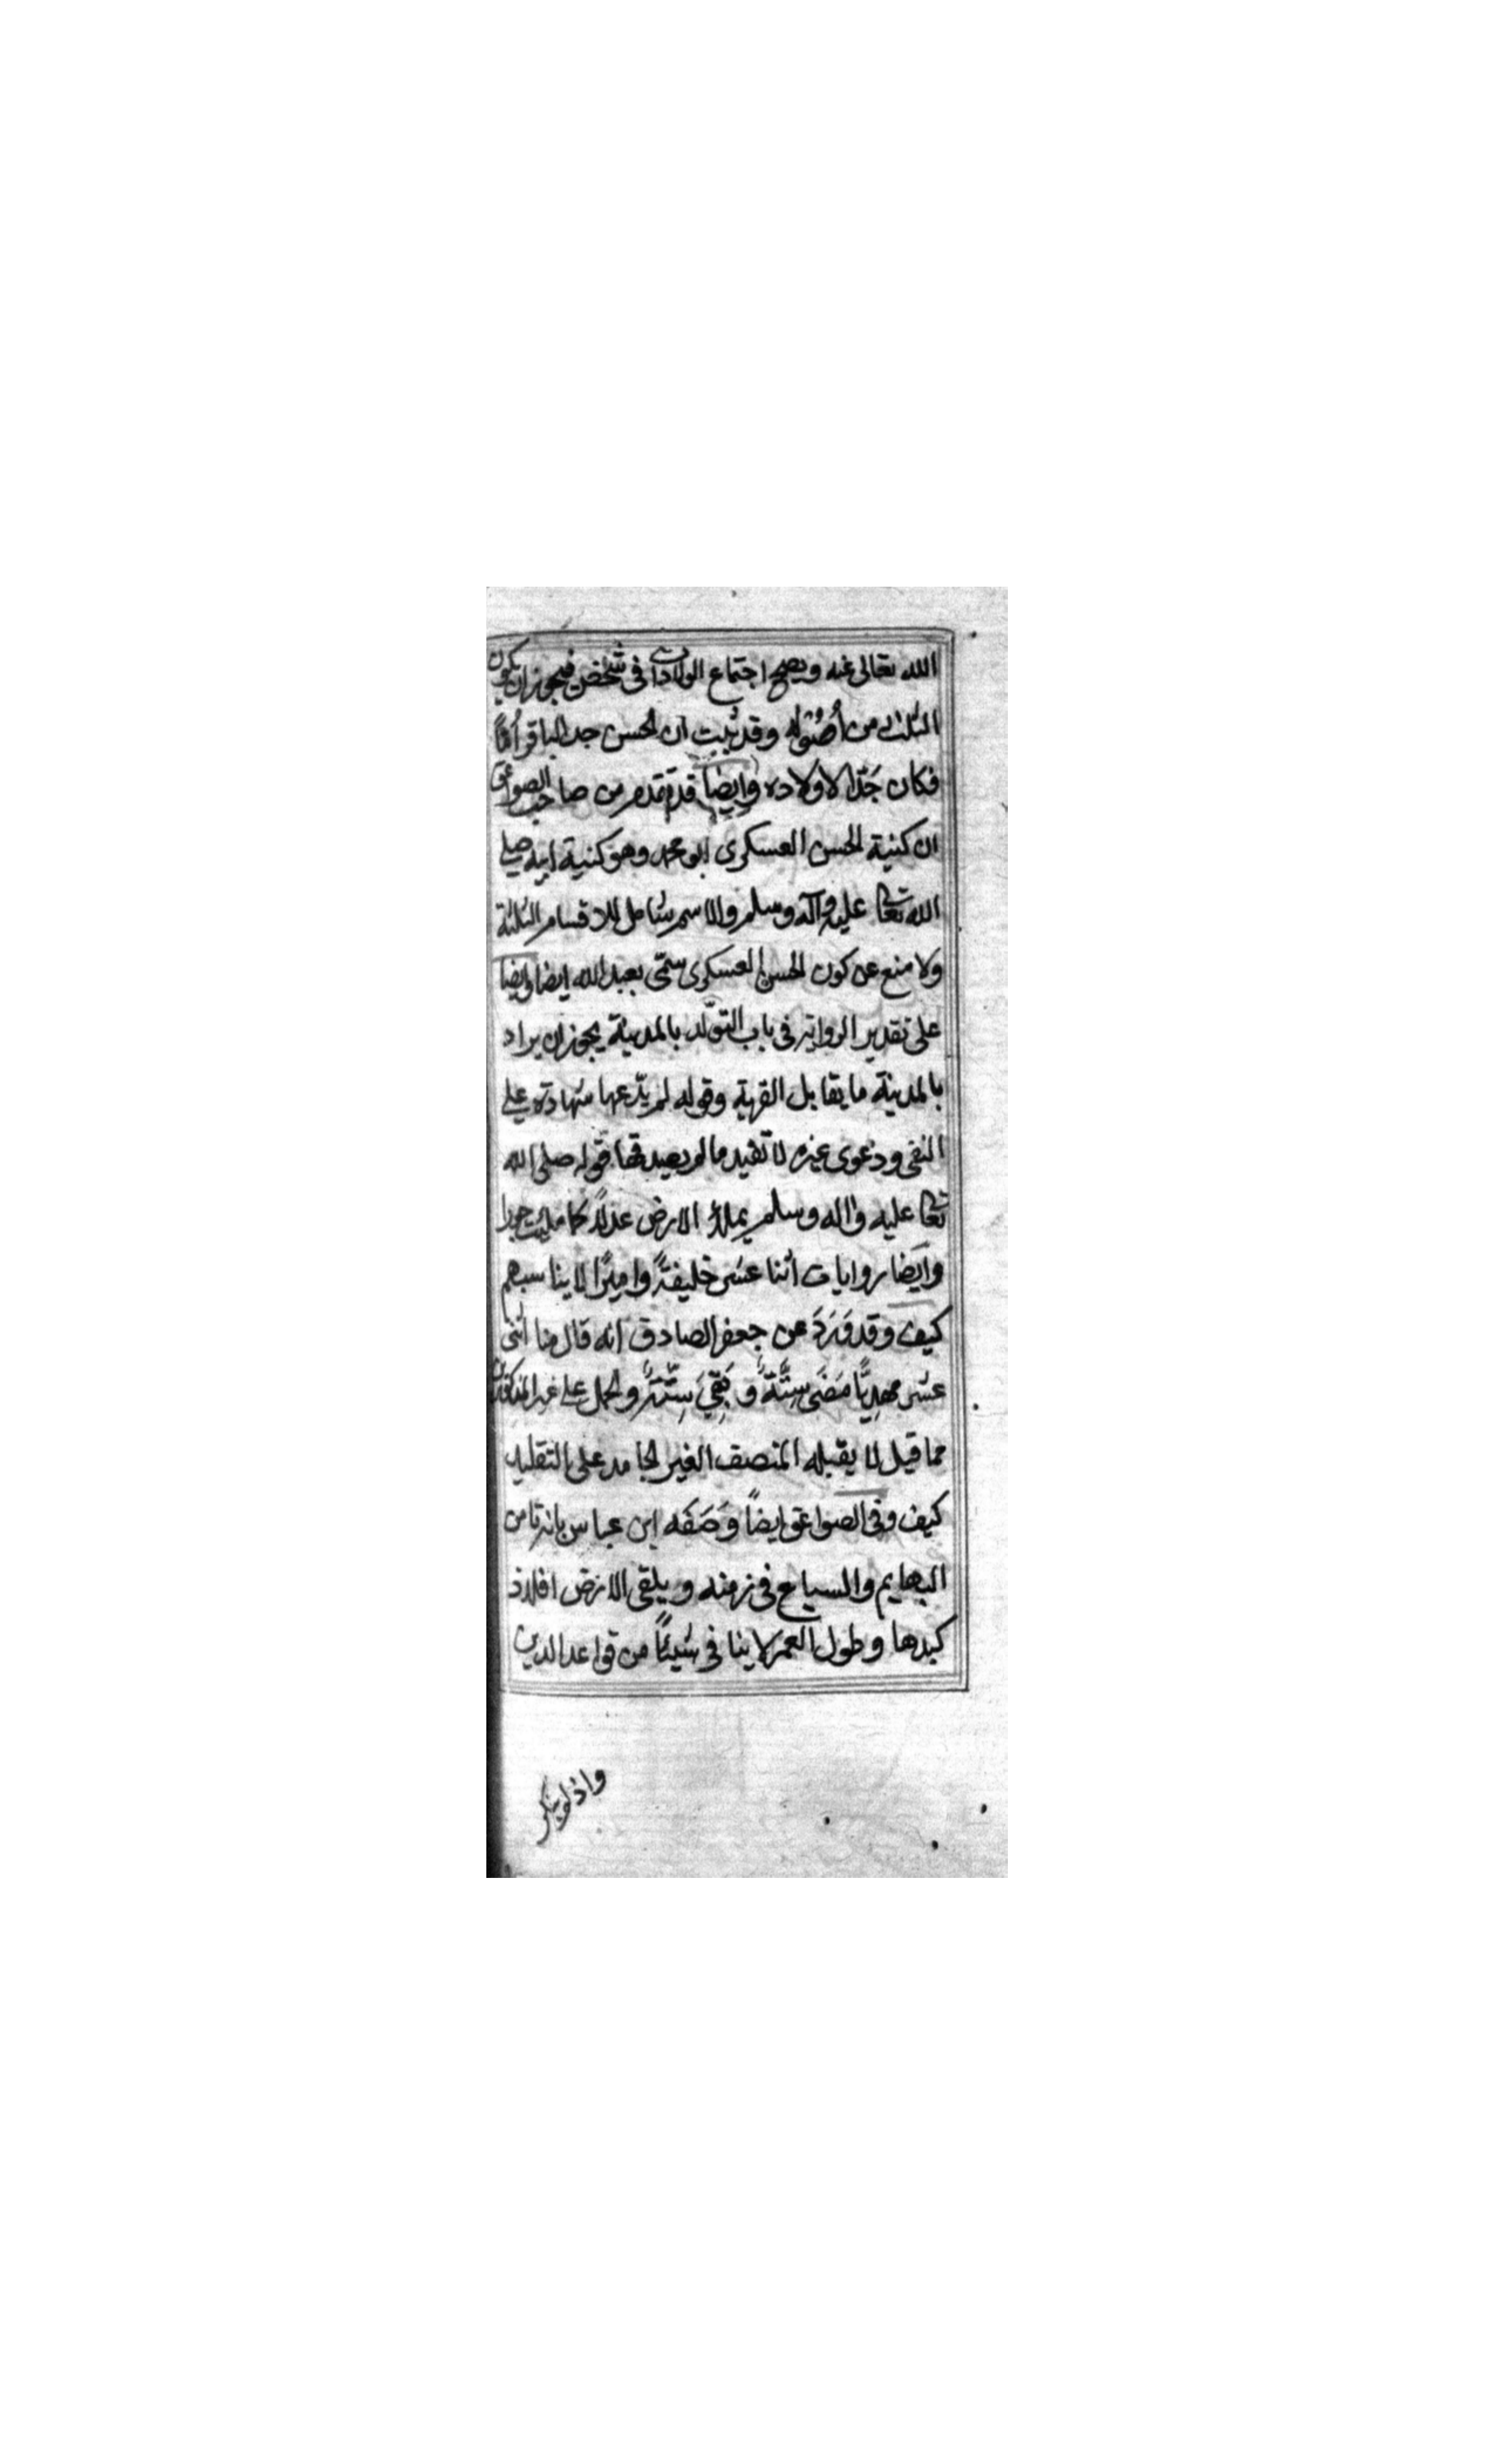 الله تعالى عنه ويصح اجتماع الولادات فى شخص فيجوز ان يكون
الثلث من أصُوُله وقد ثبت ان الحسن جد الباقر أمًّا
فكان جَدّا لاولاده وايضا قد تقدم من صاحب الصواعق
ان كنية الحسن العسكرى ابو محمد وهو كنية ابيه صلى
الله تعالى عليه وآله وسلم والاسم شامل للاقسام الثلثة
ولا منع عن كون الحسن العسكرى سمّى بعبد الله ايضا وايضا
على تقدير الرواية فى باب التولّد بالمدينة يجوز ان يراد
بالمدينة ما يقابل القرية وقوله لم يدّعها شهادة على
النفى ودعوى غيره لا تفيد ما لم يصدقها قوله صلى الله
تعالى عليه واله وسلم يملأ الارض عدلاً كما ملئت جورا
وايَضا روايات اثنا عشر خليفةً واميرًا لا يناسبهم
كيف وقد وَرَدَ عن جعفر الصادق انه قال منا اثنى
عشر مهديًّا مَضَى سِتَّةٌ وبَقِيَ سِتَّةٌ والحمل على غير المذكورين
مما قيل لا يقبله المنصف الغير الجامد على التقليد
كيف وفى الصواعق ايضاً وَصَفَه ابن عباس بانه تامن
البهايم والسباع فى زمنه ويلقى الارض افلاذ
كبدها وطول العمر لا ينافى شيئًا من قواعد الدين
واذ لم ينكر